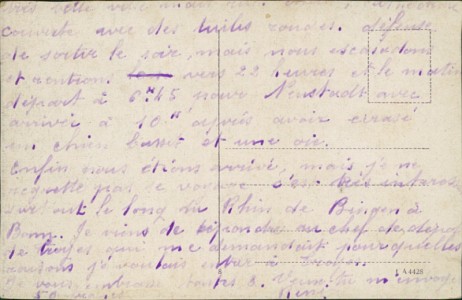 couverte avec des tuiles rondes. défense
de sortir le soir, mais nous escaladons
et rentrons vers 22 heures et le matin
départ à 6H45 pour Neustadt avec
arrivée à 10H après avoir écrasé
un chien basset et une oie.
Enfin nous étions arrivé, mais je ne
regrette pas le voyage c'est très intéres
surtout le long du Rhin de Bingen à
Bonn. Je viens de répondre au chef de dépôt
de Troyes qui me demandait pour quelles
raisons je voulais entrer à
Je vous embrasse toutes 3. tu m'envoye
50
René
A 4428